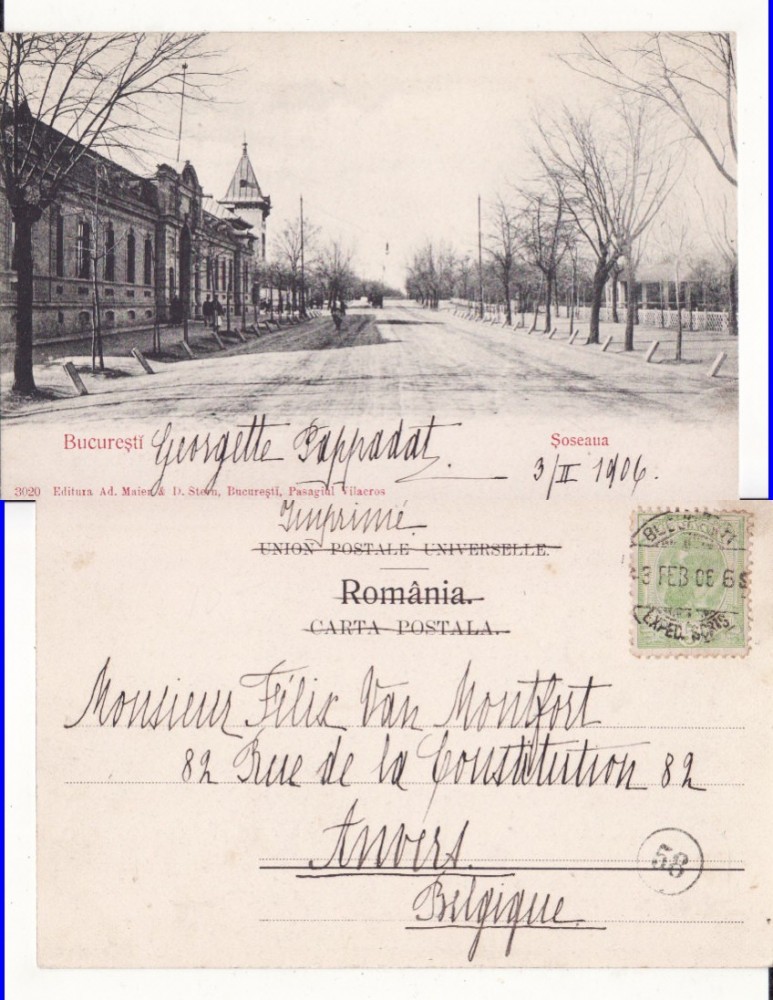 București Georgette Pappadat. Șoseaua
3/II 1906.
3020 Editura Ad. Maier & D. Stern, București, Pasagiul Vilacros
Imprimé
UNION POSTALE UNIVERSELLE.
România.
CARTA POSTALA.
BUCURESTI
3 FEB 06 6S
EXPED. SCRIS
Monsieur Félix Van Montfort
82 Rue de la Constitution 82
Anvers.
Belgique.
58